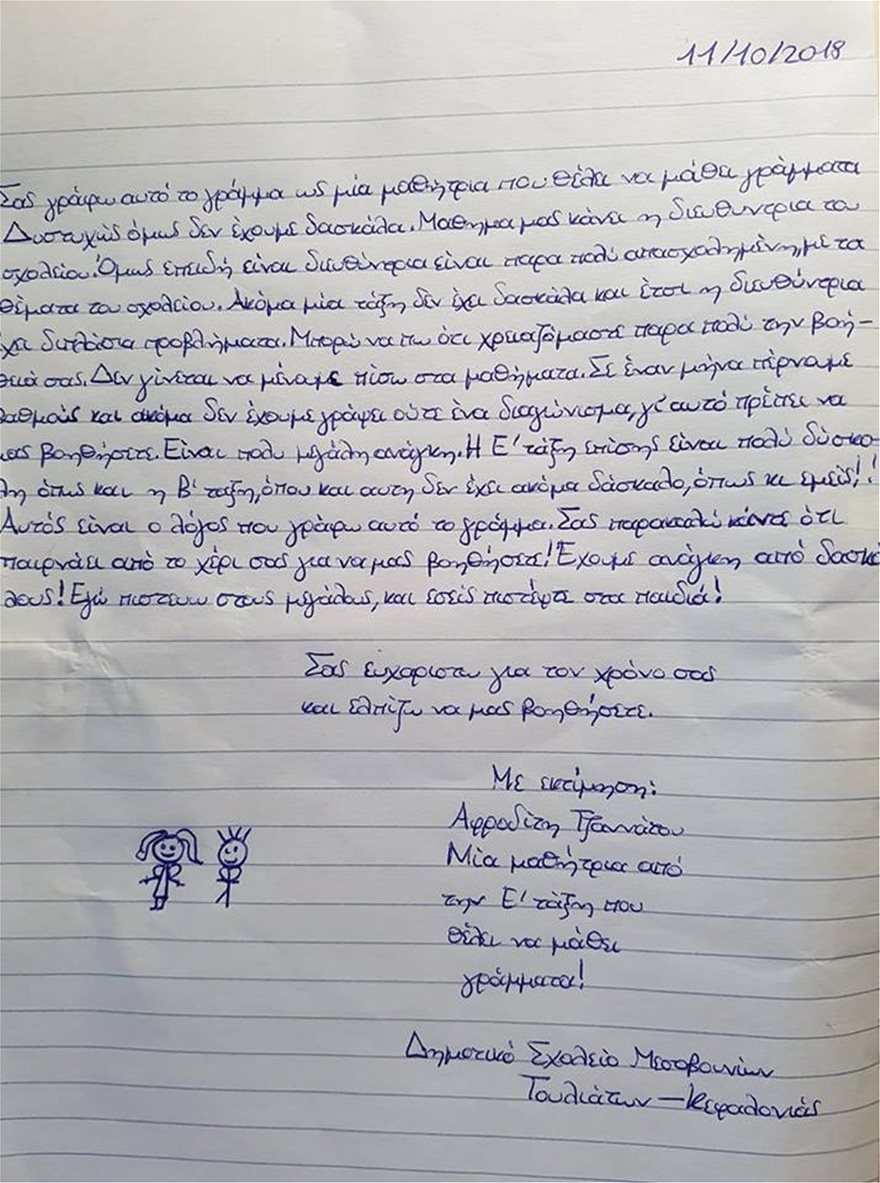 11/10/2018
Σας γράφω αυτό το γράμμα ως μία μαθήτρια που θέλει να μάθει γράμματα
Δυστυχώς όμως δεν έχουμε δασκάλα. Μαθημα μας κάνει η διευθυντρια του
σχολείου. Όμως επειδή είναι διευθύντρια είναι παρα πολύ απασχολημένη, με τα
θέματα του σχολείου. Ακόμα μία τάξη δεν έχει δασκάλα και έτσι η διευθύντρια
χει διπλάσια προβλήματα. Μπορώ να πω ότι χρειαζόμαστε παρα πολύ την βοή-
θειά σας. Δεν γίνεται να μέναμε πίσω στα μαθήματα. Σε έναν μήνα πέρναμε
βαθμούς και ακόμα δεν έχουμε γράψει ούτε ένα διαγώνισμα, γι' αυτό πρέπει να
μας βοηθήσετε. Είναι πολυ μεγάλη ανάγκη. Η Ε' τάξη επίσης είναι πολύ δύσκο-
λη όπως και η Β' ταξη, όπου και αυτη δεν έχει ακόμα δάσκαλο, όπως κι εμείς!!
Αυτός είναι ο λόγος που γράφω αυτό το γράμμα. Σας παρακαλώ κάντε ότι
παιρνάει από το χέρι σας για να μας βοηθήσετε! Έχουμε ανάγκη από δασκά
λους! Εγώ πιστευω στους μεγάλους, και εσείς πιστέψτε στα παιδιά!
Σας ευχαριστω για τον χρόνο σας
και ελπίζω να μας βοηθήσετε.
Με εκτίμηση:
Αφροδίτη Τζαννάτου
Μία μαθήτρια από
την Ε' τάξη που
θέλει να μάθει
γράμματα!
Δημοτικό Σχολείο Μεσοβουνίων
Τουλιάτων – Κεφαλονιάς